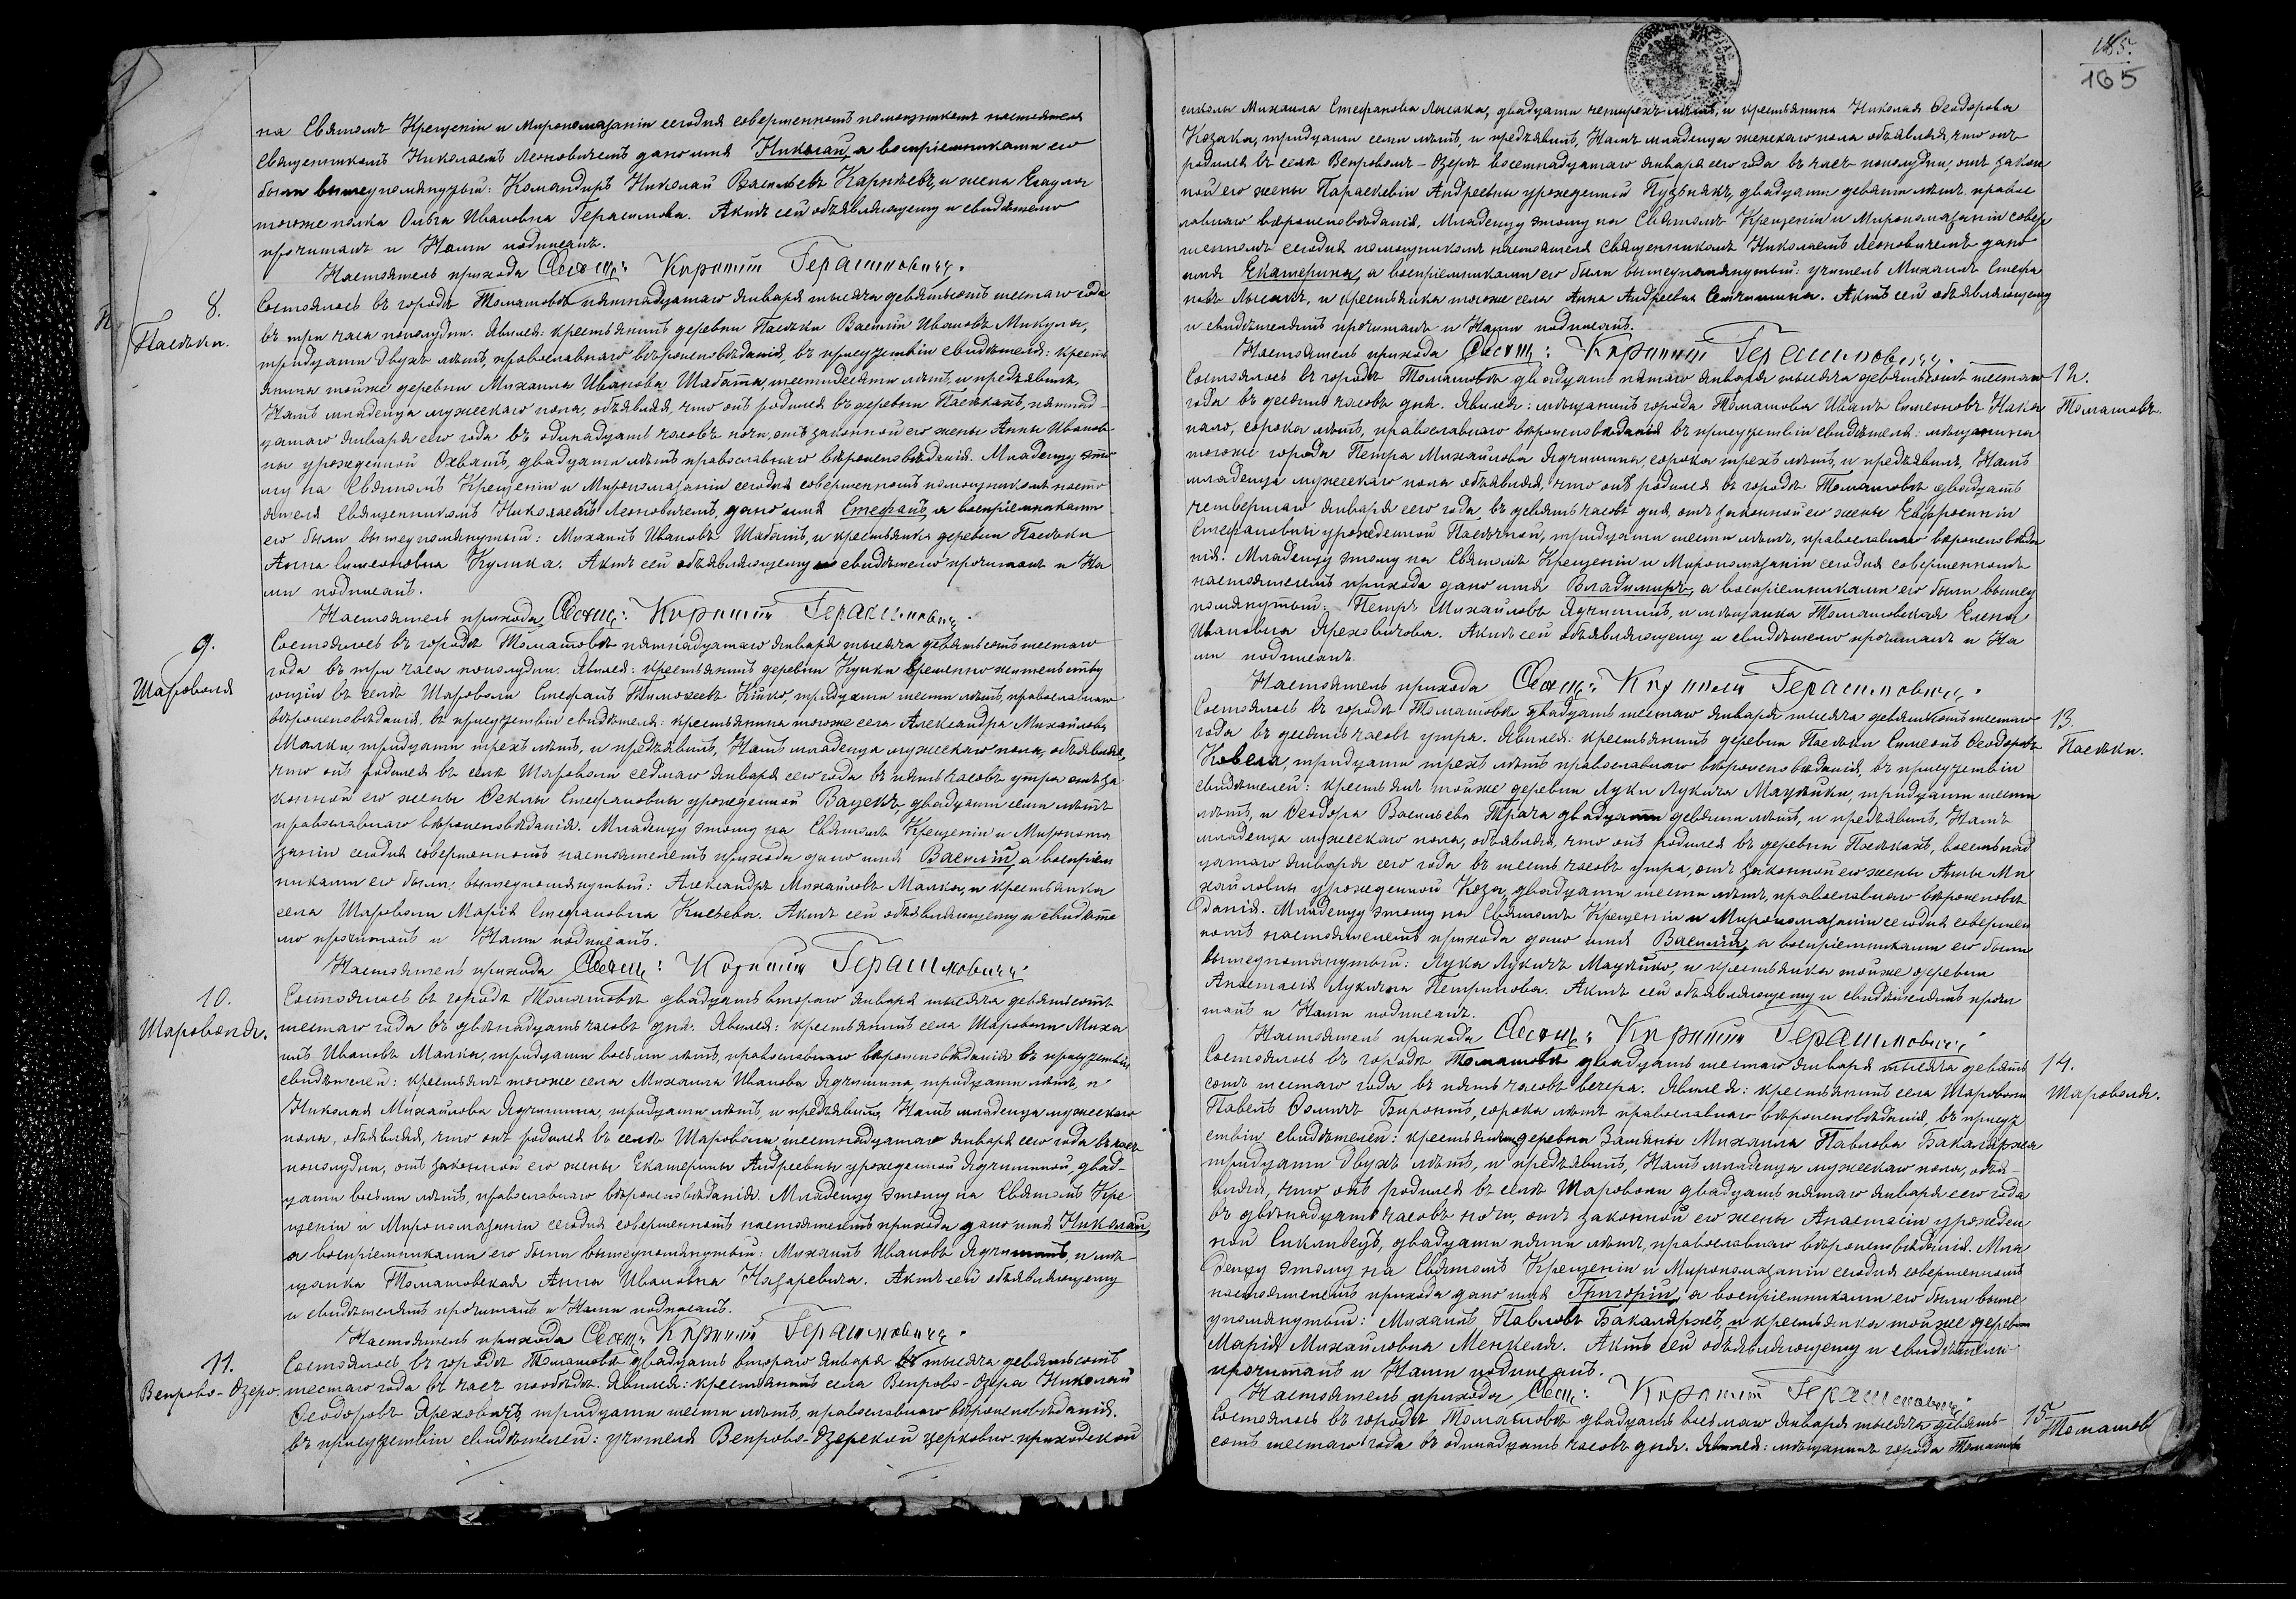 на Святомъ Крещеніи и Миропомазаніи сегодня совершенномъ помощникомъ настоятеля
священникомъ Николаемъ Леоновичемъ дано имя Николай, а воспріемниками его
были вышеупомянутый: Командиръ Николай Васильевъ Карнѣевъ, и жена Есаула
тогоже полка Ольга Ивановна Герасимова. Актъ сей объявляющему и свидѣтелю
прочитанъ и Нами подписанъ.
Настоятель прихода Свящ: Герасимовичъ.
8.
Пасѣки.
Состоялось въ городѣ Томашовѣ пятнадцатаго января тысяча девятьсотъ шестаго года
въ три часа пополудни. Явился: крестьянинъ деревни Пасѣки Василій Ивановъ Микула,
тридцати двухъ лѣтъ, православнаго вѣроисповѣданія, въ присутствіи свидѣтеля: кресть
янина тойже деревни Михаила Иванова Шабата, шестидесяти лѣтъ, и предъявилъ
Намъ младенца мужескаго пола, объявляя, что онъ родился въ деревни Пасѣкахъ, пятнад-
цатаго января сего года въ одинадцать часовъ ночи, отъ законной его жены Анны Иванов
ны урожденной Охватъ, двадцати лѣтъ православнаго вѣроисповѣданія. Младенцу это
му на Святомъ Крещеніи и Миропомазаніи сегодня совершенномъ помощникомъ насто
ятеля священникомъ Николаемъ Леоновичемъ, дано имя Стефанъ, а воспріемниками
его были вышеупомянутый: Михаилъ Ивановъ Шабатъ, и крестьянка деревни Пасѣки
Анна Симеоновна Кулика. Актъ сей объявляющему и свидѣтелю прочитанъ и На
ми подписанъ.
Настоятель прихода Свящ: Герасимовичъ.
9.
Шароволя
Состоялось въ городѣ Томашовѣ пятнадцатаго января тысяча девятьсотъ шестаго
года въ три часа пополудни. Явился: крестьянинъ деревни Кунки временно жительству
ющій въ селѣ Шароволи Стефанъ Тимофеевъ тридцати шести лѣтъ, православнаго
вѣроисповѣданія, въ присутствіи свидѣтеля: крестьянина тогоже села Александра Михайлова
Малки, тридцати трехъ лѣтъ, и предъявилъ, Намъ младенца мужескаго пола, объявляя,
что онъ родился въ селѣ Шароволи седмаго января сего года въ пять часовъ утра отъ за
конной его жены Ѳеклы Стефановны урожденной Вацекъ, двадцати семи лѣтъ
православнаго вѣроисповѣданія. Младенцу этому на Святомъ Крещеніи и Миропома
заніи сегодня совершенномъ настоятелемъ прихода дано имя Василій, а воспріем
никами его были, вышеупомянутый: Александръ Михайловъ Малка, и крестьянка
села Шароволи Марія Стефановна Киcѣева. Актъ сей объявляющему и свидѣте
лю прочитанъ и Нами подписанъ.
Настоятель прихода Свящ: Герасимовичъ.
10.
Шароволя.
Состоялось въ городѣ Томашовѣ двадцать втораго января тысяча девятьсотъ
шестаго года въ двѣнадцать часовъ дня. Явился: крестьянинъ села Шароволи Миха
илъ Ивановъ Малка, тридцати восьми лѣтъ, православнаго вѣроисповѣданія въ присутствіи
свидѣтелей: крестьянъ тогоже села Михаила Иванова Ядчишина, тридцати лѣтъ, и
Николая Михайлова Ядчишина, тридцати лѣтъ, и предъявилъ, Намъ младенца мужескаго
пола, объявляя, что онъ родился въ селѣ Шароволи шестнадцатаго января сего года въ часъ
пополудни, отъ законной его жены Екатерины Андреевны урожденной Ядчишиной, двад-
цати восьми лѣтъ, православнаго вѣроисповѣданія. Младенцу этому на Святомъ Кре
щеніи и Миропомазаніи сегодня совершенномъ настоятелемъ прихода дано имя Николай,
а воспріемниками его были вышеупомянутый: Михаилъ Ивановъ Ядчишинъ, и мѣ-
щанка Томашовская Анна Ивановна Назаревича. Актъ сей объявляющему
и свидѣтелямъ прочитанъ и Нами подписанъ.
Настоятель прихода Свящ: Герасимовичъ.
11.
Венрово-Озеро.
Состоялось въ городѣ Томашовѣ двадцать втораго января тысяча девятьсотъ
шестаго года въ часъ пообѣдѣ. Явился: крестьянинъ села Венрово-Озера Николай
Ѳеодоровъ Яреховичъ тридцати шести лѣтъ, православнаго вѣроисповѣданія.
въ присутствіи свидѣтелей: учителя Венрово-Озерской церковно-приходской
165
школы Михаила Стефанова Лысака, двадцати четырехъ лѣтъ, и крестьянина Николая Ѳеодорова
Козака, тридцати семи лѣтъ, и предъявилъ, Намъ младенца женскаго пола объявляя, что онъ
родился въ селѣ Венровомъ-Озерѣ восемнадцатаго января сего года въ часъ пополудни, отъ закон
ной его жены Параскевіи Андреевны урожденной Пузьнякъ, двадцати девяти лѣтъ правос
лавнаго вѣроисповѣданія. Младенцу этому на Святомъ Крещеніи и Миропомазаніи совер
шенномъ сегодня помощникомъ настоятеля священникомъ Николаемъ Леоновичемъ дано
имя Екатерина, а воспріемниками его были вышеупомянутый: учитель Михаилъ Стефа
новъ Лысакъ, и крестьянка тогоже села Анна Андреевна Семчишина. Актъ сей объявляющему
и свидѣтелямъ прочитанъ и Нами подписанъ.
Настоятель прихода Свящ: Герасимовичъ.
12.
Томашовъ.
Состоялось въ городѣ Томашовѣ двадцать пятаго января тысяча девятьсотъ шестаго
года въ десять часовъ дня. Явился: мѣщанинъ города Томашова Иванъ Симеоновъ Нако
нало, сорока лѣтъ, православнаго вѣроисповѣданія въ присутствіи свидѣтеля: мѣщанина
тогоже города Петра Михайлова Ядчишина, сорока трехъ лѣтъ, и предъявилъ, Намъ
младенца мужескаго пола объявляя, что онъ родился въ городѣ Томашовѣ двадцать
четвертаго января сего года, въ девять часовъ дня, отъ законной его жены Евфросиніи
Стефановны урожденной Пасѣчной, тридцати шести лѣтъ, православнаго вѣроисповѣда
нія. Младенцу этому на Святомъ Крещеніи и Миропомазаніи сегодня совершенномъ
настоятелемъ прихода дано имя Владимиръ, а воспріемниками его были вышеу
помянутый: Петръ Михайловъ Ядчишинъ, и мѣщанка Томашовская Елена
Ивановна Яреховичова. Актъ сей объявляющему и свидѣтелю прочитанъ и На
ми подписанъ.
Настоятель прихода Свящ: Герасимовичъ.
13.
Пасѣки.
Состоялось въ городѣ Томашовѣ двадцать шестаго января тысяча девятьсотъ шестаго
года въ десять часовъ утра. Явился: крестьянинъ деревни Пасѣки Симеонъ Ѳеодоровъ
Ковела, тридцати трехъ лѣтъ православнаго вѣроисповѣданія, въ присутствіи
свидѣтелей: крестьянъ тойже деревни Луки Лукича Мацѣйки, тридцати шести
лѣтъ, и Ѳеодора Васильева Трача двадцати девяти лѣтъ, и предъявилъ, Намъ
младенца мужескаго пола, объявляя, что онъ родился въ деревни Пасѣкахъ, восемьнад
цатаго января сего года въ шесть часовъ утра, отъ законной его жены Анны Ми
хайловны урожденной Коза, двадцати шести лѣтъ, православнаго вѣроисповѣ
данія. Младенцу этому на Святомъ Крещеніи и Миропомазаніи сегодня совершен
номъ настоятелемъ прихода дано имя Василій, а воспріемниками его были
вышеупомянутый: Лука Лукичъ Мацѣйко, и крестьянка тойже деревни
Анастасія Лукична Петрикова. Актъ сей объявляющему и свидѣтелямъ прочи
танъ и Нами подписанъ.
Настоятель прихода Свящ: Герасимовичъ
14.
Шароволя.
Состоялось въ городѣ Томашовѣ двадцать шестаго января тысяча девять
сотъ шестаго года въ пять часовъ вечера. Явился: крестьянинъ села Шароволи
Павелъ Ѳомичъ сорока лѣтъ православнаго вѣроисповѣданія, въ присут
ствіи свидѣтелей: крестьянина деревни Замяны Михаила Павлова Бакаляржа
тридцати двухъ лѣтъ, и предъявилъ, Намъ младенца мужескаго пола, объя-
вляя, что онъ родился въ селѣ Шароволи двадцать пятаго января сего года
въ двѣнадцать часовъ ночи, отъ законной его жены Анастасіи урожден
ной двадцати пяти лѣтъ, православнаго вѣроисповѣданія. Мла
денцу этому на Святомъ Крещеніи и Миропомазаніи сегодня совершенномъ
настоятелемъ прихода дано имя Григорій, а воспріемниками его были выше
упомянутый: Михаилъ Павловъ Бакаляржъ, и крестьянка тойже деревни
Марія Михайловна Менкеля. Актъ сей объявляющему и свидѣтелю
прочитанъ и Нами подписанъ.
Настоятель прихода Свящ: Герасимовичъ
15
Томашов
Состоялось въ городѣ Томашовѣ двадцать восьмаго января тысяча девять-
сотъ шестаго года въ одинадцать часовъ дня. Явился: мѣщанинъ города Томашова